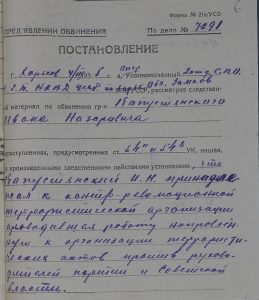 6
Форма № 21а/УСО
ПРЕДЪЯВЛЕНИИ ОБВИНЕНИЯ По делу № 7291
ПОСТАНОВЛЕНИЕ
г. Харьков
Уполномоченный
рассмотрев следствен-
материал по обвинению гр-н Капустянского
Ивана Назаровича
преступлениях, предусмотренных ст. 54⁸ и 54¹¹ УК, нашел,
произведенными следственными действиями установлено, что
Капустянский И. Н. принадле-
жал к контр-революционной
террористической организации
проводившая работу направлен-
ную к организации террористи-
ческих актов против руково-
дителей партии и Советской
власти.